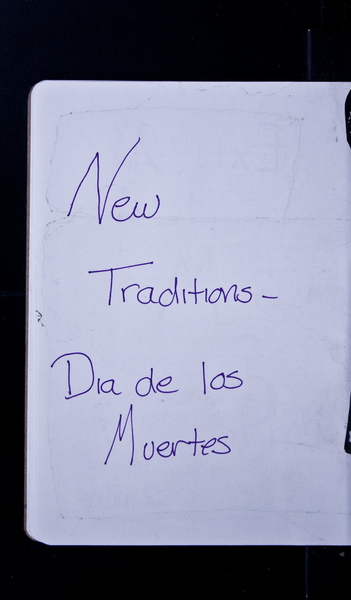 New
Traditions-
Dia de los
Muertes